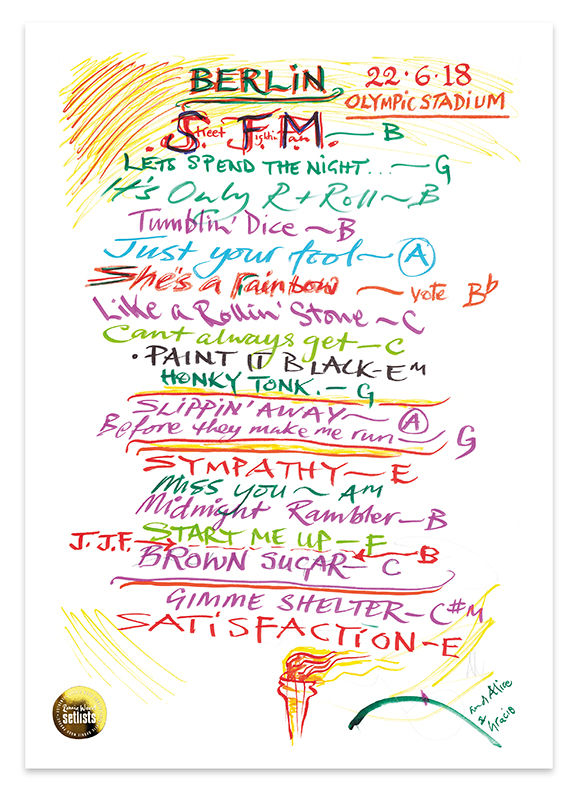 BERLiN
22·6·18
OLYMPIC STADIUM
Street Fightin' Man — B
LETS SPEND THE NiGHT... — G
It's Only R + Roll — B
Tumblin' Dice — B
Just your fool — A
She's a Rainbow — vote Bb
Like a Rollin' Stone — C
Cant always get — C
· PAINT IT BLACK — EM
HONKY TONK. — G
SLIPPIN' AWAY — A
Before they make me run — G
SYMPATHY — E
Miss you ~ AM
Midnight Rambler — B
START ME UP — F
J.J.F. → ← B
BROWN SUGAR — C
GIMME SHELTER — C#M
SATiSFACTION — E
Ronnie Wood
setlists
and Alice
& Gracie